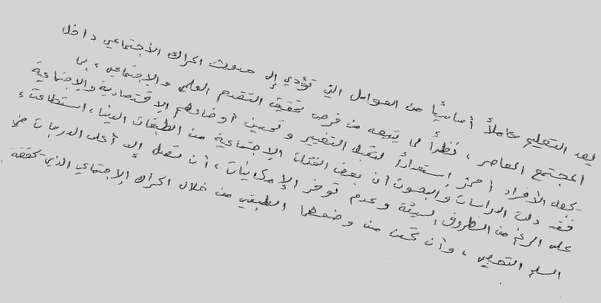 يعد التعليم عاملاً أساسياً من العوامل التي تؤدي إلى حدوث الحراك الاجتماعي داخل
المجتمع المعاصر ، نظراً لما يتيحه من فرص تحقيق التقدم العلمي والاجتماعي ، بما
يجعل الأفراد أكثر إستعداداً لتقبل التغيير و تحسين أوضاعهم الاقتصادية والإجتماعية
فقد دلت الدراسات والبحوث أن بعض الفئات الاجتماعية من الطبقات الدنيا ، استطاعت ،
على الرغم من الظروف السيئة وعدم توفر الإمكانيات ، أن تصل إلى أعلى الدرجات في
السلم التعليمي ، وأن تحسن من وضعها الطبقي من خلال الحراك الاجتماعي الذي تحققه .